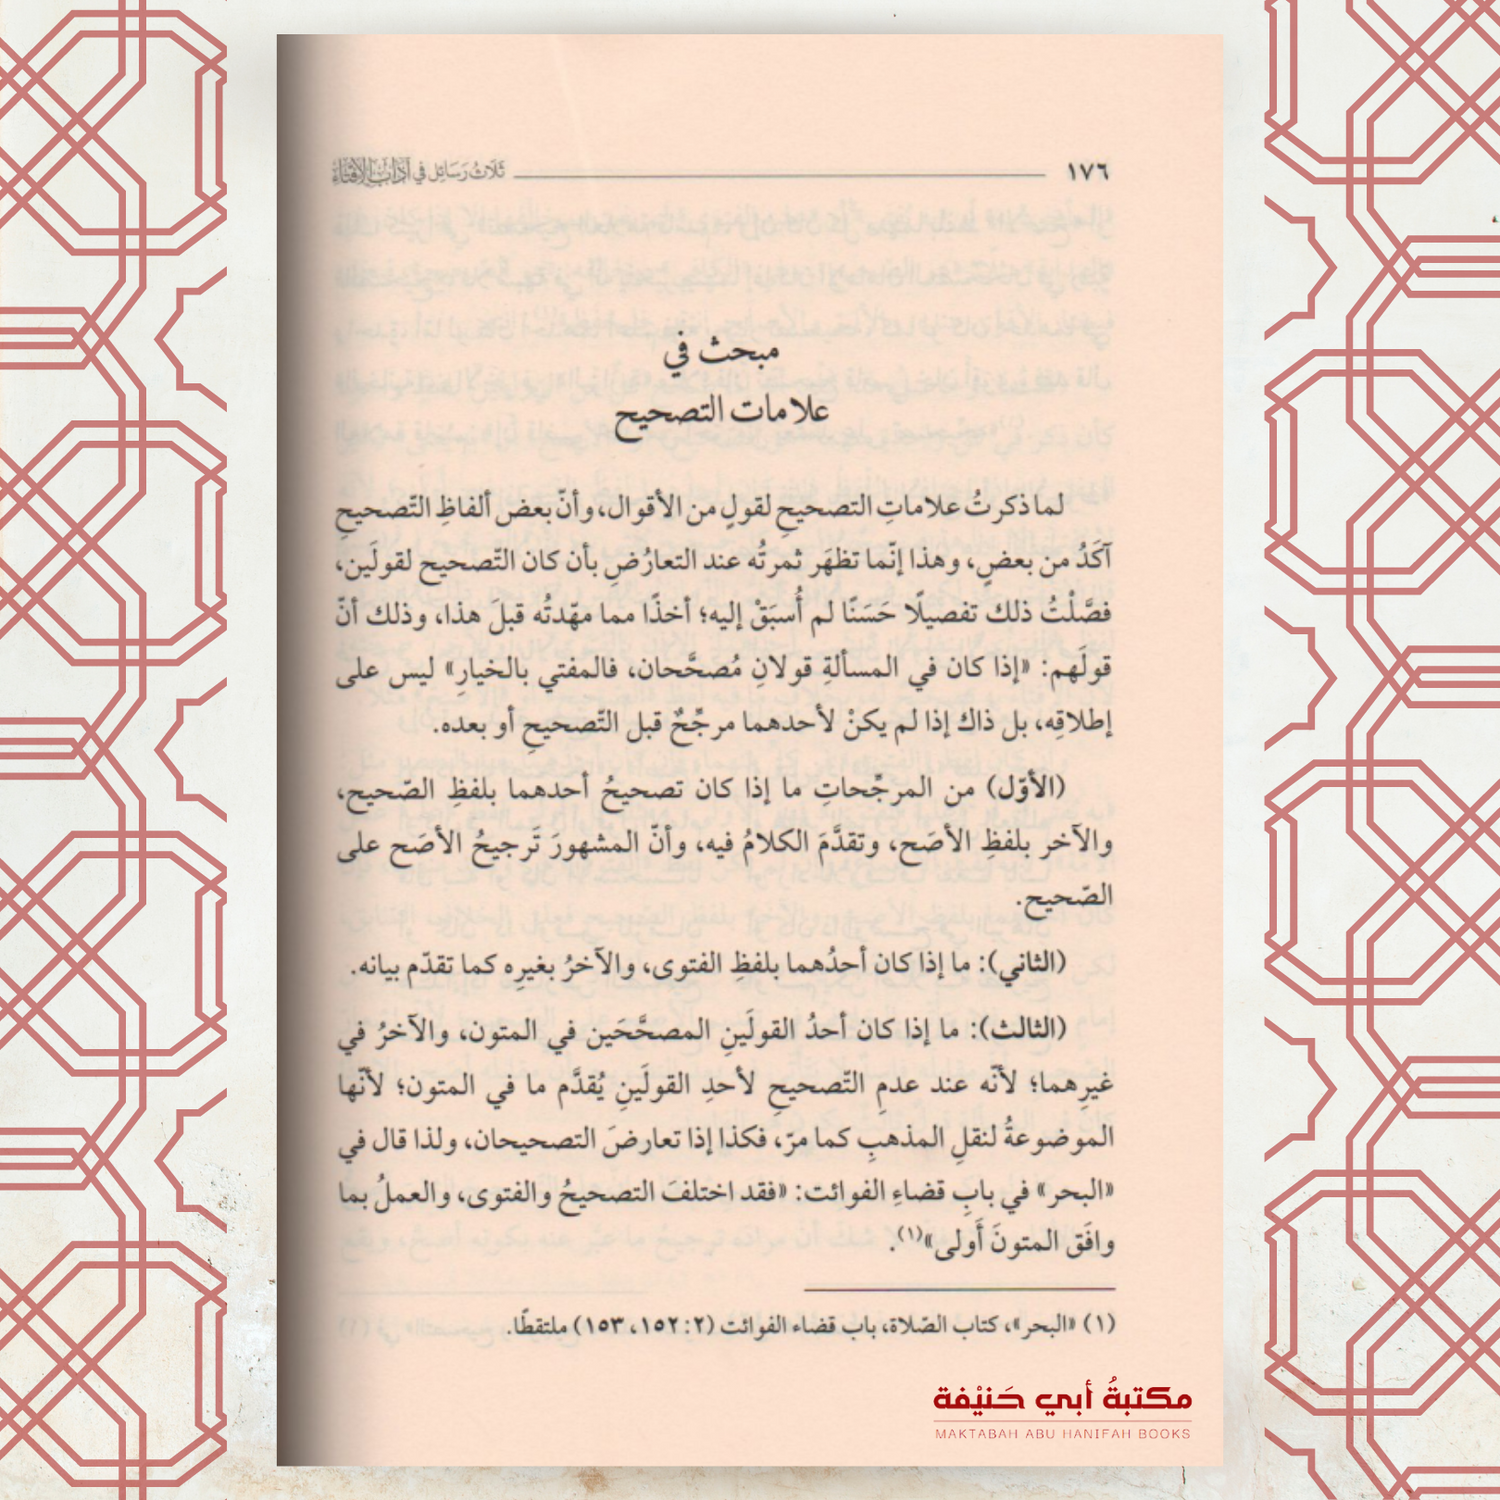 ١٧٦ ثَلَاثُ رَسَائِل في آدَابِ الإِفْتَاء
مبحث في
علامات التصحيح
لما ذكرتُ علاماتِ التصحيحِ لقولٍ من الأقوال، وأنّ بعض ألفاظِ التّصحيحِ
آكَدُ من بعضٍ، وهذا إنّما تظهَر ثمرتُه عند التعارُضِ بأن كان التّصحيح لقولَين،
فصَّلْتُ ذلك تفصيلًا حَسَنًا لم أُسبَقْ إليه؛ أخذًا مما مهّدتُه قبلَ هذا، وذلك أنّ
قولَهم: «إذا كان في المسألةِ قولانِ مُصحَّحان، فالمفتي بالخيارِ» ليس على
إطلاقِه، بل ذاك إذا لم يكنْ لأحدهما مرجِّحٌ قبل التّصحيحِ أو بعده.
(الأوّل) من المرجِّحاتِ ما إذا كان تصحيحُ أحدهما بلفظِ الصّحيح،
والآخر بلفظِ الأصَح، وتقدَّمَ الكلامُ فيه، وأنّ المشهورَ تَرجيحُ الأصَح على
الصّحيح.
(الثاني): ما إذا كان أحدُهما بلفظِ الفتوى، والآخرُ بغيرِه كما تقدّم بيانه.
(الثالث): ما إذا كان أحدُ القولَينِ المصحَّحَين في المتون، والآخرُ في
غيرِهما؛ لأنّه عند عدمِ التّصحيحِ لأحدِ القولَينِ يُقدَّم ما في المتون؛ لأنّها
الموضوعةُ لنقلِ المذهبِ كما مرّ، فكذا إذا تعارضَ التصحيحان، ولذا قال في
«البحر» في بابِ قضاءِ الفوائت: «فقد اختلفَ التصحيحُ والفتوى، والعملُ بما
وافَق المتونَ أَولى»(١).
(١) «البحر»، كتاب الصّلاة، باب قضاء الفوائت (٢: ١٥٢، ١٥٣) ملتقطًا.
مكتبةُ أبي حَنيْفة
MAKTABAH ABU HANIFAH BOOKS